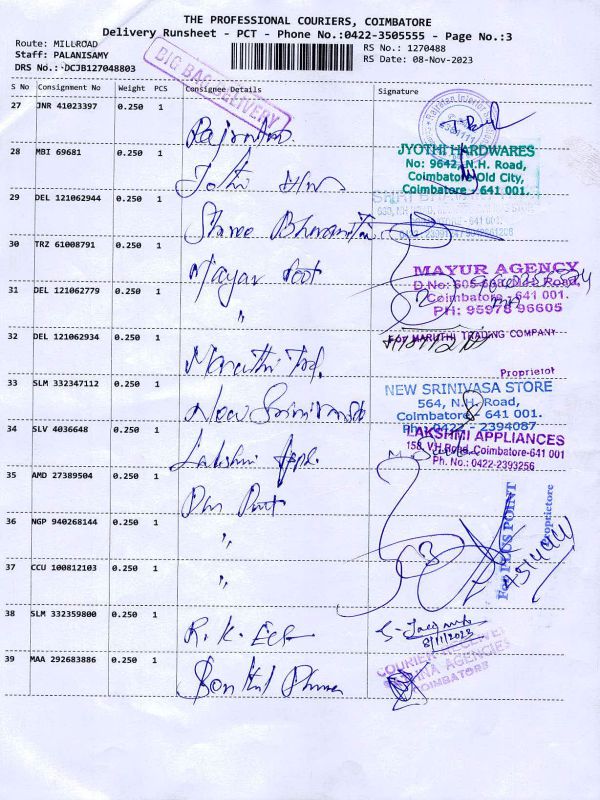 THE PROFESSIONAL COURIERS, COIMBATORE
Delivery Runsheet - PCT - Phone No.:0422-3505555 - Page No.:3
Route: MILLROAD
Staff: PALANISAMY
DRS No.: DCJB127048803
RS No.: 1270488
RS Date: 08-Nov-2023
BIG BAG DELIVERY
S No Consignment No Weight PCS Consignee Details Signature
27 JNR 41023397 0.250 1
28 MBI 69681 0.250 1 Jothi
JYOTHI HARDWARES
No: 9642, N.H. Road,
Coimbatore Old City,
Coimbatore - 641 001.
29 DEL 121062944 0.250 1 Shree
30 TRZ 61008791 0.250 1 Mayur
MAYUR AGENCY
Coimbatore - 641 001.
PH: 95978 96605
31 DEL 121062779 0.250 1 "
For MARUTHI TRADING COMPANY
Proprietot
32 DEL 121062934 0.250 1 Maruthi Trd.
33 SLM 332347112 0.250 1 New Srinivasa
NEW SRINIVASA STORE
564, N.H. Road,
Coimbatore - 641 001.
Ph: 0422 - 2394087
34 SLV 4036648 0.250 1 Lakshmi Appl.
LAKSHMI APPLIANCES
158, V.H Road, Coimbatore-641 001
Ph. No.: 0422-2393256
35 AMD 27389504 0.250 1
For PLUS POINT
Proprietore
36 NGP 940268144 0.250 1 "
37 CCU 100812103 0.250 1 "
38 SLM 332359800 0.250 1 R. K.
8/11/2023
39 MAA 292683886 0.250 1
COIMBATORE